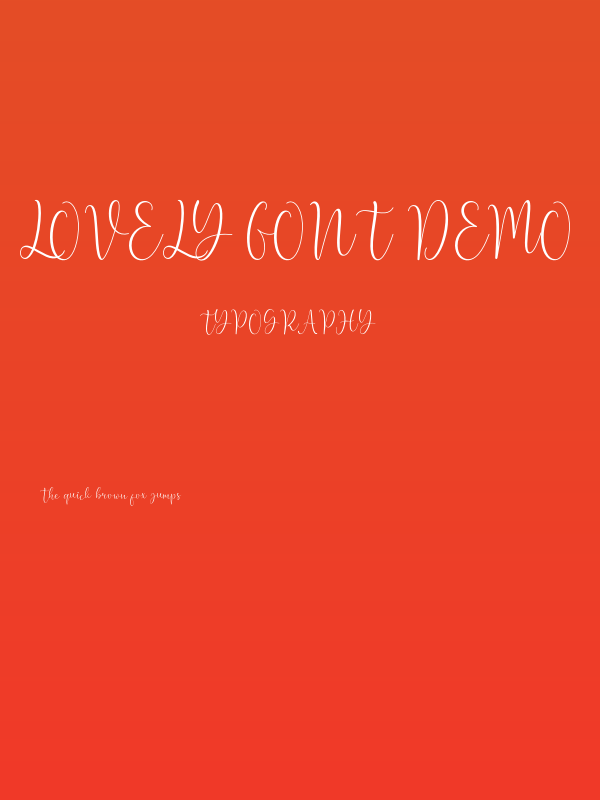 LOVELY FONT DEMO
TYPOGRAPHY
the quick brown fox jumps